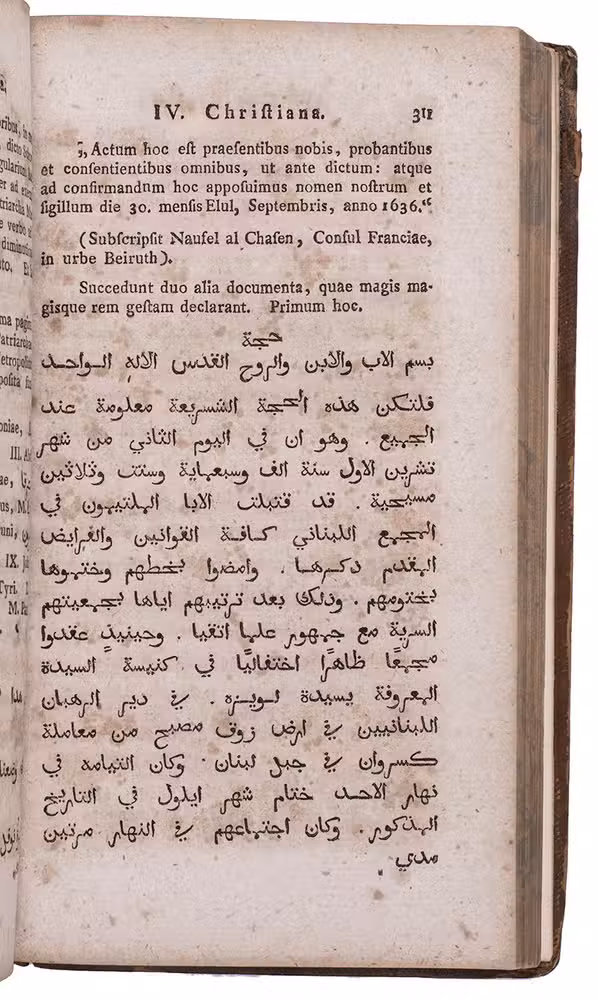 IV. Chriſtiana. 311
„Actum hoc eſt praeſentibus nobis, probantibus
et conſentientibus omnibus, ut ante dictum: atque
ad confirmandum hoc appoſuimus nomen noſtrum et
ſigillum die 30. menſis Elul, Septembris, anno 1636.“
(Subſcripſit Naufel al Chaſen, Conſul Franciae,
in urbe Beiruth).
Succedunt duo alia documenta, quae magis ma-
gisque rem geſtam declarant. Primum hoc.
حجة
بسم الاب والابن والروح القدس الاله الواحد
فلتكن هذه الحجة الشريعة معلومة عند
الجميع . وهو ان في اليوم الثاني من شهر
تشرين الاول سنة الف وسبعماية وست وثلاثين
مسيحية . قد قتبلت الابا الملتيمون في
المجمع اللبناني كافة القوانين والفرايض
المقدم ذكرها . وامضوا بخطهم وختموها
بختومهم . وذلك بعد ترتيبهم اياها بجمعيتهم
السرية مع جمهور علما اتقيا . وحينيذ عقدوا
مجمعًا ظاهرًا احتفاليًا في كنيسة السيدة
المعروفة بسيدة لويزه . في دير الرهبان
اللبنانيين في ارض زوق مصبح من معاملة
كسروان في جبل لبنان . وكان التيامه في
نهار الاحد ختام شهر ايلول في التاريخ
المذكور . وكان اجتماعهم في النهار مرتين
مدي